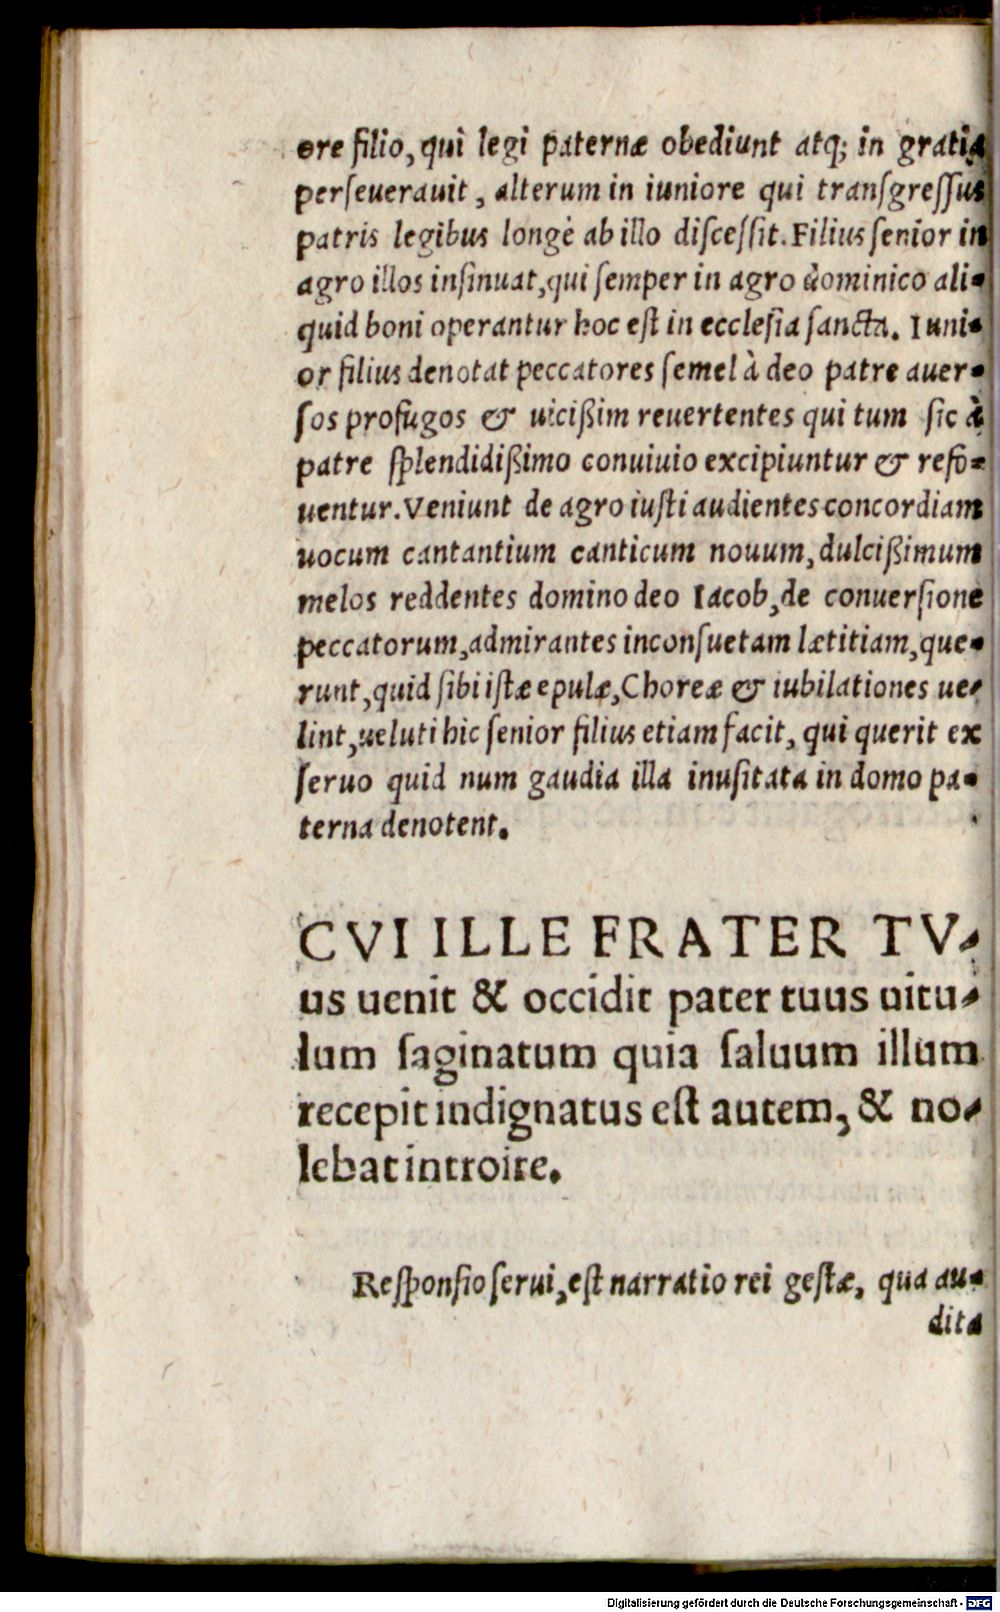 ore filio, qui legi paternæ obediunt atq; in gratia
perſeuerauit, alterum in iuniore qui tranſgreſſus
patris legibus longè ab illo diſceſſit. Filius ſenior in
agro illos inſinuat, qui ſemper in agro dominico ali-
quid boni operantur hoc eſt in eccleſia ſancta. Iuni-
or filius denotat peccatores ſemel à deo patre auer-
ſos profugos & uicißim reuertentes qui tum ſic à
patre ſplendidißimo conuiuio excipiuntur & refo-
uentur. Veniunt de agro iuſti audientes concordiam
uocum cantantium canticum nouum, dulcißimum
melos reddentes domino deo Iacob, de conuerſione
peccatorum, admirantes inconſuetam lætitiam, que-
runt, quid ſibi iſtæ epulæ, Choreæ & iubilationes ue-
lint, ueluti hic ſenior filius etiam facit, qui querit ex
ſeruo quid num gaudia illa inuſitata in domo pa-
terna denotent.
CVI ILLE FRATER TV-
us uenit & occidit pater tuus uitu-
lum ſaginatum quia ſaluum illum
recepit indignatus eſt autem, & no-
lebat introire.
Reſponſio ſerui, eſt narratio rei geſtæ, qua au-
dita
Digitalisierung gefördert durch die Deutsche Forschungsgemeinschaft - DFG